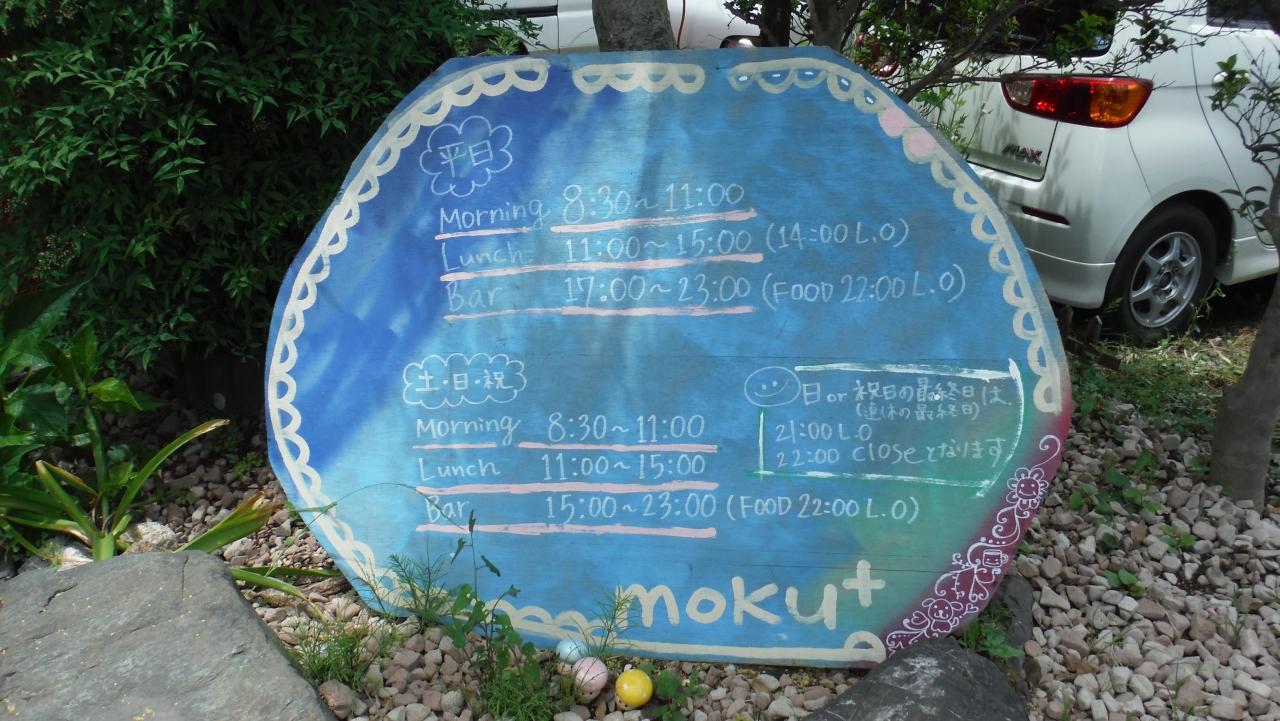 平日
Morning 8:30~11:00
Lunch 11:00~15:00 (14:00 L.O)
Bar 17:00~23:00 (FOOD 22:00 L.O)
土・日・祝
Morning 8:30~11:00
Lunch 11:00~15:00
Bar 15:00~23:00 (FOOD 22:00 L.O)
日 or 祝日の最終日は
(連休の最終日)
21:00 L.O
22:00 closeとなります
moku+